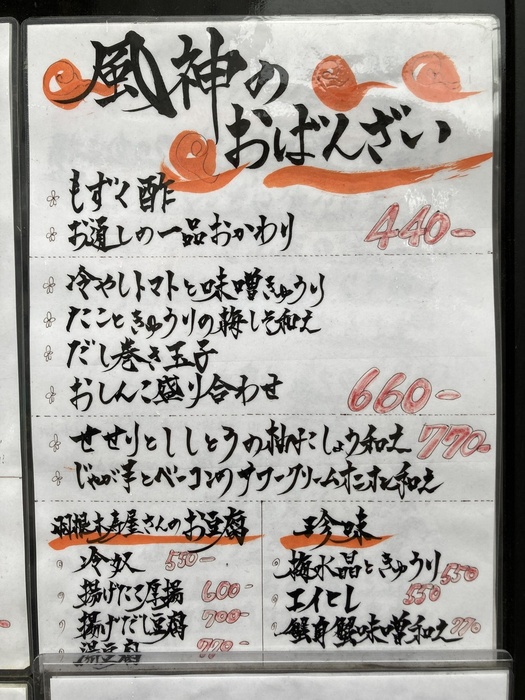 風神の
おばんざい
もずく酢
お通しの一品おかわり 440-
冷やしトマトと味噌きゅうり
たこときゅうりの梅しそ和え
だし巻き玉子
おしんこ盛り合わせ 660-
せせりとししとうの柚子こしょう和え 770-
じゃが芋とベーコンのサワークリームオニオンと和え
屋さんのお豆腐
冷奴 530-
揚げたこ厚揚 600-
揚げだし豆腐 700-
湯豆腐 770-
珍味
梅水晶ときゅうり 550
エイヒレ 550
蟹身蟹味噌和え 770